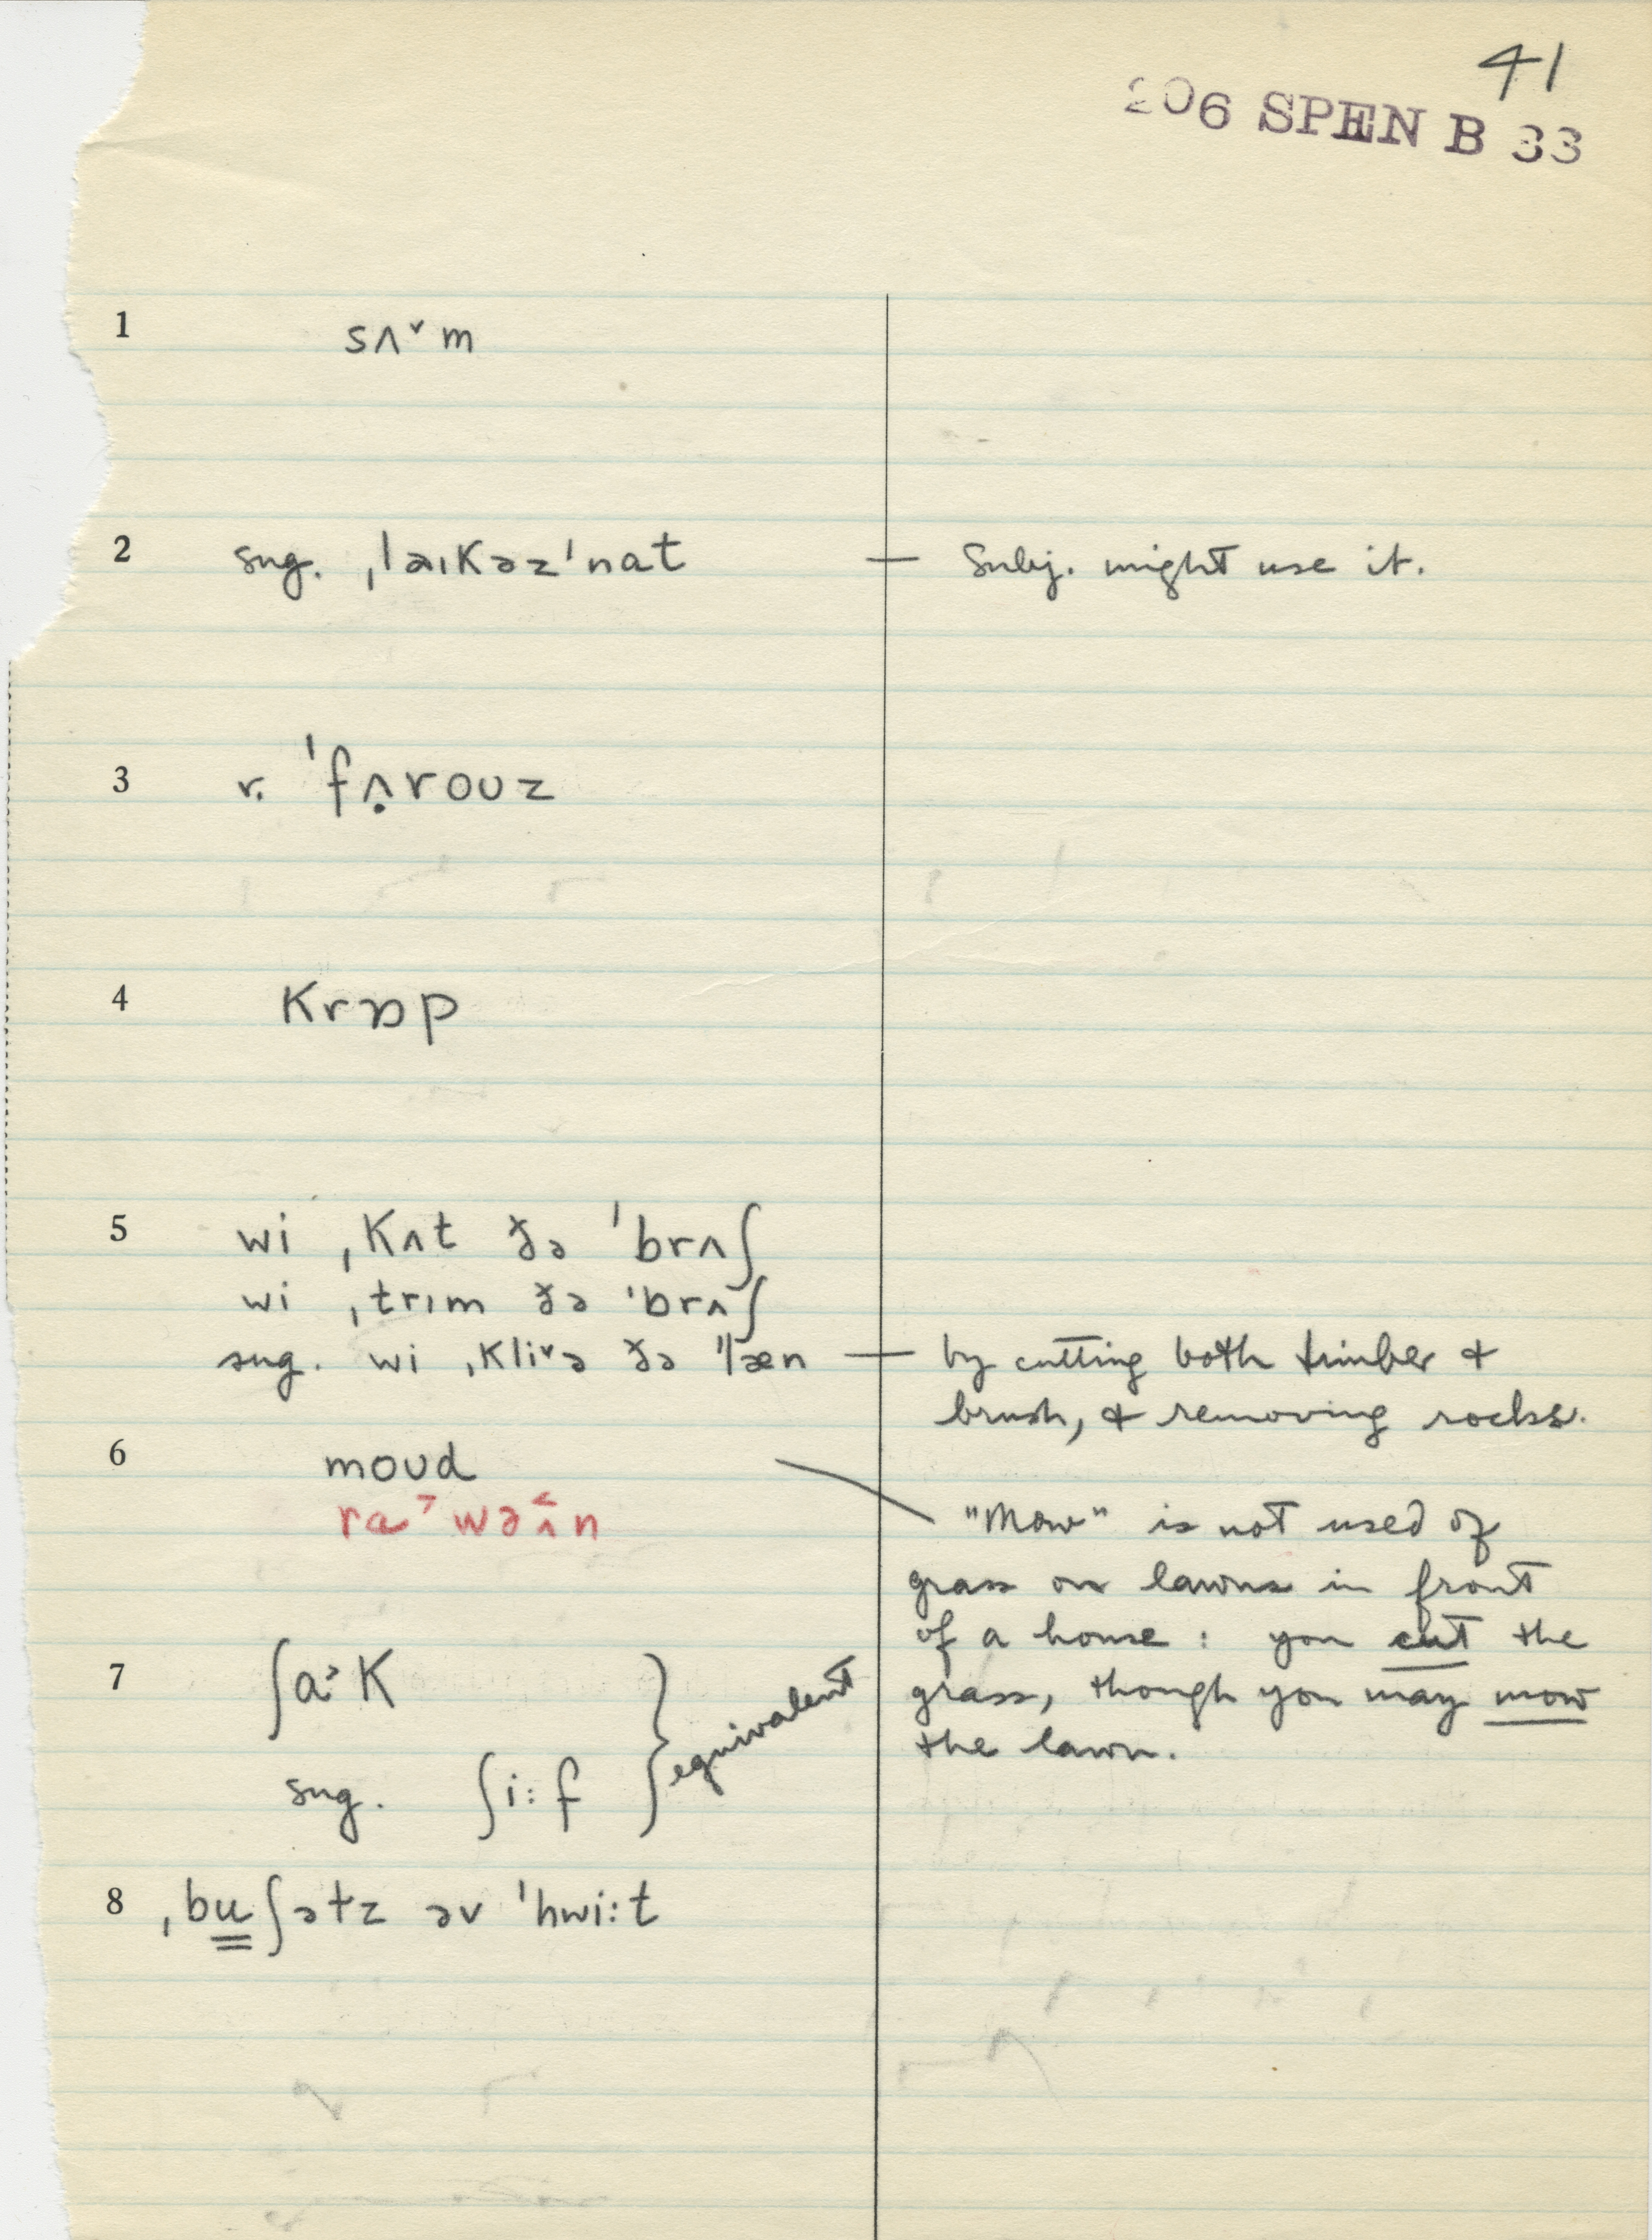 41
206 SPEN B 33
1 sʌ˅m
2 sug. ˌləɪkəz'nat — Subj. might use it.
3 r. 'fʌ̣roʊz
4 krɒp
5 wi ˌkʌt ðə 'brʌʃ
wi ˌtrɪm ðə 'brʌʃ
sug. wi ˌkli˅ə ðə 'læn — by cutting both timber &
brush, & removing rocks.
6 moʊd
ra˃wəʌ̂n
"Mow" is not used of
grass on lawns in front
of a house: you cut the
grass, though you may mow
the lawn.
7 ʃa˃k
sug. ʃi:f } equivalent
8 ˌbuʃəɫz əv 'hwi:t